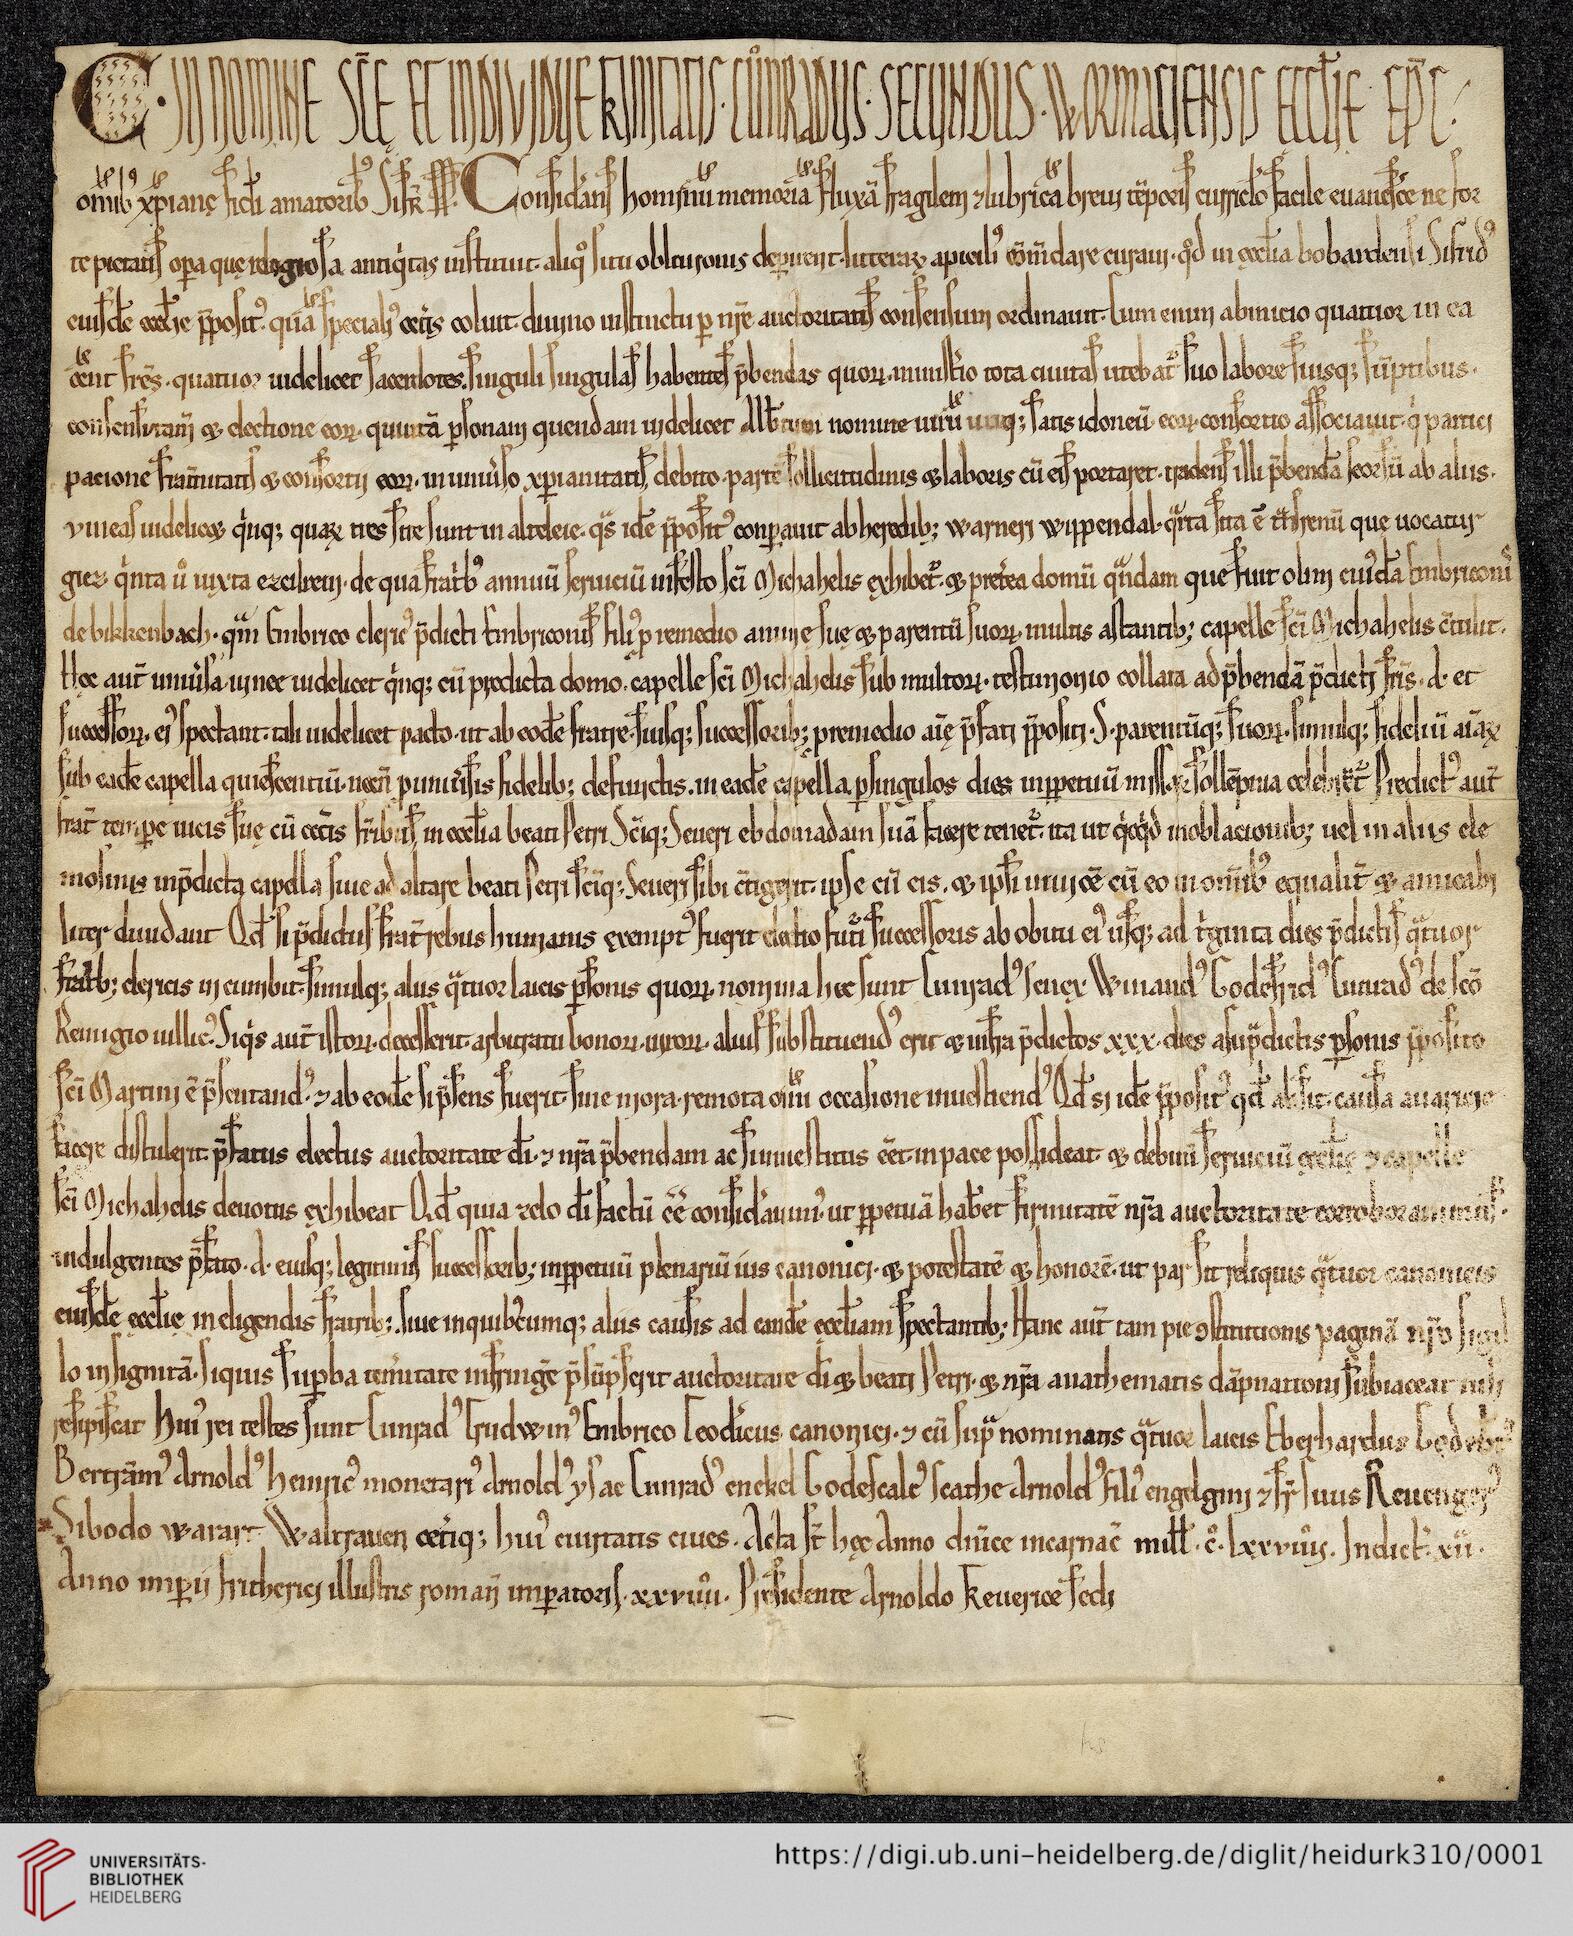 C. IN NOMINE SCĒ ET INDIVIDUE TRINITATIS. CŮNRADUS. SECUNDUS. WORMACIENSIS ECCL̄IE EP̄C.
om̄ib' xp̄ianę fidei amatorib'. Considerans hominū memoriā fluxā fragilem & lubricā brevi tēporis curriclo facile evanescere ne for
te pietatis opera quę religiosa antiq̇tas instituit aliq° situ oblivionis depereant litterar̄ apicib' cōmdare curavi. qd̄ in ęcclīa bobardensi Sifrid'
eiusdē eccl̄ie p̄posit'. quā specialī cet̄is coluit. divino instinctu p nr̄e auctoritatis consensum ordinavit. Cum enim ab inicio quatuor in ea
ēēnt fr̄ēs. quatuor videlicet sacerdotes. singuli singulas habentes p̄bendas quorū. minist̄io tota civitas uteбat̄ suo labore suisq; sūptibus.
consensu tam̄ & electione eor̄. quintā p̄sonam quendam videlicet Alb̄tum nomine virū utiq; satis idoneū. eor̄. consortio associavit. q̇ partici
pacione frat̄nitatis & consortii eor̄. in univ̄so xp̄ianitatis debito. partē sollicitudinis & laboris cū eis portaret. tradens illi p̄bendā seorsū ab aliis.
vineas videlic& q̇nq; quar̄ tres site sunt in alteleie. q̄s idē p̄posit' conparavit ab heredib; warneri wippendal. q̄rta sita ē que vocatur
gier q̇nta ů iuxta ezelbrein. de qua fratrib' annuū serviciū in festo scī Michahelis exhibet̄. & pret̄ea domū q̄ndam que fuit olim cuiusdā Embriconis
de bikkenbach. quā Embrico cleric' p̄dicti Embriconis fili' p remedio animę suę & parentū suor̄. multis astantib; capelle scī Michahelis c̄tulit.
Hęc aut̄ univ̄sa vinee videlicet q̇nq; cū predicta domo. capelle scī Michahelis sub multor̄. testimonio collata ad p̄bendā p̄dicti fr̄is. A. et
successor̄. ei' spectant. tali videlicet pacto. ut ab eodē fratre. suisq; successorib; p remedio aīę p̄fati p̄positi. S. parentūq; suor̄. simulq; fideliū aīar̄
sub eadē capella quiescentiū. necn̄ p univ̄sis fidelib; defunctis. in eadē capella p singulos dies inp̄petuū missar̄ sollēpnia celebrēt̄. Predict' aut̄
frat̄ tempe vicis suę cū cet̄is fr̄ibus in eccl̄ia beati Petri Scīq; Severi ebdomadam suā facere tenet̄. ita ut q̇cq̇d in oblacionib; vel in aliis ele
mosinis in p̄dicta capella sive ad altare beati Petri scīq; Severi sibi c̄tigerit. ipse cū eis. & ipsi vicē cū eo in om̄ib' equalit̄ & amicabi
liter dividant Qd̄ si p̄dictus frat̄ rebus humanis exempt' fuerit electio fut̄i successoris ab obitu ei' usq; ad t̄ginta dies p̄dictis q̄tuor
frat̄b; clericis incumbit. simulq; aliis q̄tuor laicis p̄sonis quor̄. nomina hec sunt Cunrad' senex Winand' Godefrid' Cunrad' de scō
Remigio villic'. Siq̇s aut̄ istor̄. decesserit. arbitratu bonor̄. viror̄. alius substituend' erit & infra p̄dictos xxx. dies a sup̄dictis p̄sonis p̄posito
scī Martini ē p̄sentand'. & ab eodē si p̄sens fuerit. sine mora. remota om̄i occasione investiend' Qd̄ si idē p̄posit' qd̄ absit. causa avaricie
facere distulerit. p̄fatus electus auctoritate dī. & nr̄a p̄bendam ac si investitus ēēt. in pace possideat. & debitū serviciū ęccl̄ię & capelle
scī Michahelis devotus exhibeat Qd̄ quia zelo dī factū ēē considerāvim'. ut p̄petuā haberet firmitatē nr̄a auctoritate corroboravimus.
indulgentes p̄fato. A. eiusq; legitimis successorib; inp̄petuū plenariū ius canonici. & potestatē & honorē. ut par sit reliquis q̄tuor canonicis
eiusdē ęccl̄ię in eligendis fratrib; sive in quibuscumq; aliis causis ad eandē ęccl̄iam spectantib; Hanc aut̄ tam pie 9stitutionis paginā nr̄o sigil
lo insignitā. siquis supba tem̄itate infringē p̄sūpserit auctoritate dī & beati Petri. & nr̄a anathematis dāpnationi subiaceat nisi
resipiscat Hui' rei testes sunt Cunrad' Trudwin' Embrico Leodicus canonici. & cū sup̄nominatis q̄tuor laicis Eberhardus
Bertrām' Arnold' heinric' monetari' Arnold' ysac Cunrad' enekel Godescalc' scathe Arnold' fili' engelgini & fr̄ suus
Sibodo warart. Waltraven cet̄iq; hui' civitatis cives. Acta st̄ hęc Anno dn̄ice incarnac̄ mill̄. c°. lxxviiii. Indict̄. xii.
Anno imp̄ii fritherici illustris romanī imperatoris. xxviiii. Presidente Arnoldo Treverice sedi
UNIVERSITÄTS-
BIBLIOTHEK
HEIDELBERG
https://digi.ub.uni-heidelberg.de/diglit/heidurk310/0001